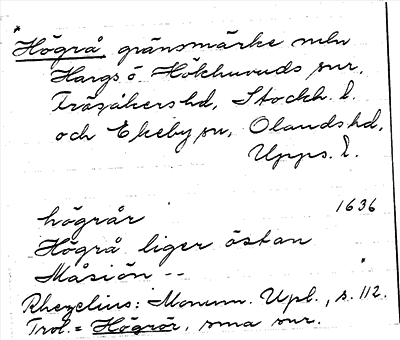 *
Högrå, gränsmärke mln
Hargs o. Hökhuvuds snr,
Frösåkers hd, Stockh. l.
och Ekeby sn, Olands hd,
Upps. l.
högrår 1636
Högrå liger östan
Måsiön --
Rhezelius: Monum. Upl., s. 112.
Trol. = Högrör, sma snr.